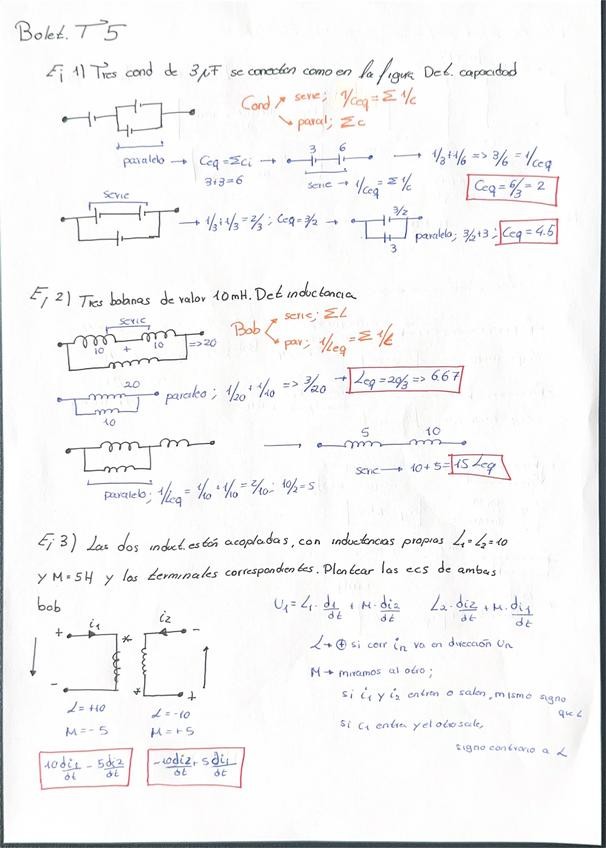 Bolet. T5
Ej 1) Tres cond de 3μF se conectan como en la figura Det. capacidad
Cond serie; 1/Ceq = Σ 1/c
paral; Σc
paralelo → Ceq = ΣCi → 3 6 → 1/3+1/6 => 3/6 = 1/Ceq
3+3=6 serie → 1/Ceq = Σ 1/c Ceq = 6/3 = 2
serie
→ 1/3+1/3=2/3; Ceq=3/2 → 3/2
3 paralelo; 3/2+3; Ceq = 4.5
Ej 2) Tres bobinas de valor 10mH. Det inductancia
serie
10 + 10 => 20
Bob serie; ΣL
par; 1/Leq = Σ 1/L
20
10
paralelo; 1/20 + 1/10 => 3/20 → Leq = 20/3 => 6.67
→ 5 10
serie → 10+5 = 15 Leq
paralelo; 1/Leq = 1/10 + 1/10 = 2/10; 10/2 = 5
Ej 3) Las dos induct. están acopladas, con inductancias propias L1=L2=10
y M=5H y los terminales correspondientes. Plantear las ecs de ambas
bob
U1 = L1· di/dt + M· di2/dt L2· di2/dt + M· di1/dt
+ i1 i2 -
* *
- +
L → ⊕ si corr in va en dirección Un
M → miramos al otro;
si i1 y i2 entran o salen, mismo signo
que L
si i1 entra y el otro sale,
signo contrario a L
L = +10 L = -10
M = -5 M = +5
10di1/dt - 5di2/dt -10di2/dt + 5di1/dt